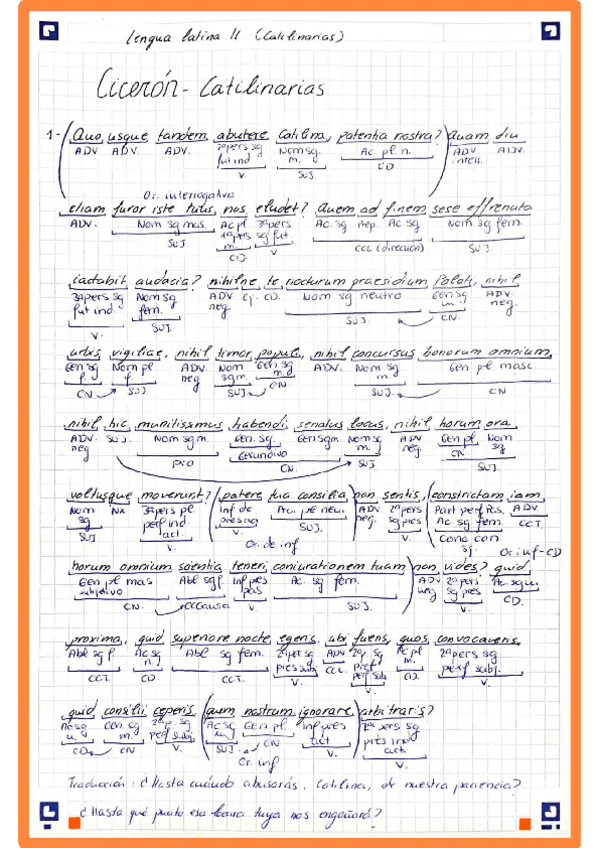 Lengua latina II (Catilinarias)
Cicerón - Catilinarias
1- (Quo usque tandem abutere Catilina, patentia nostra? Quam diu
ADV. ADV. ADV. 2ª pers sg Nom sg. Ac. pl n. ADV ADV.
fut ind m. CD interr.
V. SUJ.
Or. interrogativa
etiam furor iste tuus, nos eludet? Quem ad finem sese effrenata
ADV. Nom sg mas. Ac pl 3ª pers Ac. sg prep. Ac sg Nom sg fem.
SUJ 1ª pers sg fut CCL (dirección) SUJ.
m. V.
CD.
iactabit audacia? nihilne te nocturum praesidium Palati, nihil
3ª pers sg Nom sg ADV cj. CD. Nom sg neutro Gen sg ADV
fut ind. fem. neg. m. neg.
V. SUJ. SUJ. CN.
urbis vigiliae, nihil timor populi, nihil concursus bonorum omnium,
Gen sg Nom pl ADV. Nom Gen sg ADV. Nom sg Gen pl masc.
f. f. neg sg m. m. m.
CN SUJ SUJ CN SUJ. CN
nihil hic munitissimus habendi senatus locus, nihil horum ora
ADV. SUJ. Nom sg m. Gen. sg. Gen sg m. Nom sg ADV Gen pl Nom
neg Gerundivo m neg CN sg
CN. SUJ SUJ.
voltusque moverunt? (patere tua consilia) non sentis, (constrictam iam
Nom Nx 3ª pers pl Inf de Acu. pl neu. ADV 2ª pers Part perf Pas. ADV
sg perf ind. pres ag SUJ. neg. sg pres Ac sg fem. CCT.
SUJ act. V. V.
V. Or. de inf Or inf-CD
horum omnium scientia teneri coniurationem tuam) non vides? quid
Gen pl mas Abl sg f. Inf pres Ac. sg fem. ADV 2ª pers Ac sg n.
subjetivo CCCausa pas SUJ. neg sg pres CD.
CN. V. V.
proxima, quid superiore nocte egeris, ubi fueris, quos convocaveris,
Abl sg f. Ac sg Abl sg fem. 2ª per sg ADV 2ª p. sg Ac pl 2ª pers sg
CCT. n. CCT. V. CCL perf subj m. perf subj.
CD. V. CD. V.
quid consilii ceperis, (quem nostrum ignorare) arbitraris?
Ac sg Gen. sg 2ª p. sg Ac sg Gen pl. Inf pres 2ª pers sg
n. m. perf subj. CN act pres ind
CD CN V. SUJ. V. act.
Or. inf V.
Traducción: ¿Hasta cuándo abusarás, Catilina, de nuestra paciencia?
¿Hasta qué punto esa locura tuya nos engañará?